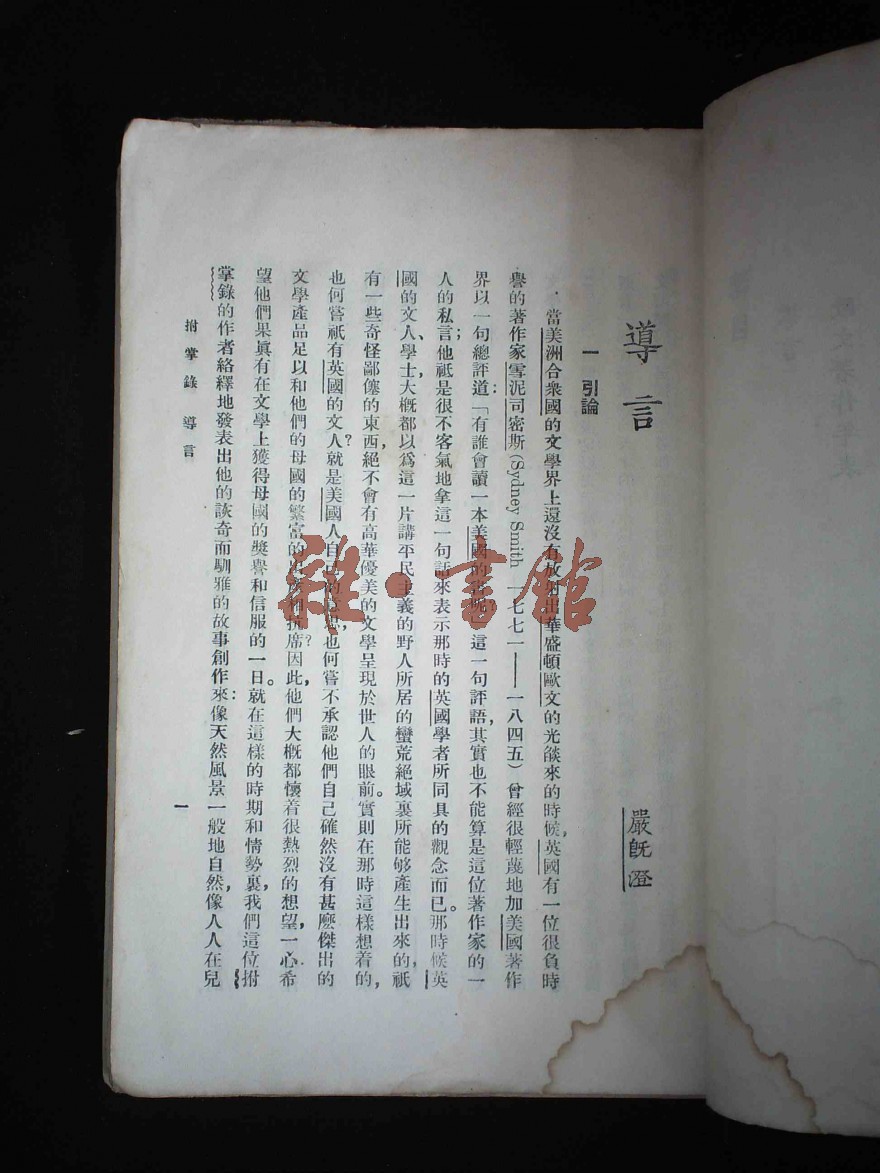 導言
嚴旣澄
一 引論
當美洲合衆國的文學界上還沒有放射出華盛頓歐文的光燄來的時候,英國有一位很負時
譽的著作家雪泥司密斯(Sydney Smith 一七七一——一八四五)曾經很輕蔑地加美國著作
界以一句總評道:「有誰會讀一本美國的書呢?」這一句評語,其實也不能算是這位著作家的一
人的私言;他祇是很不客氣地拿這一句話來表示那時的英國學者所同具的觀念而已。那時候英
國的文人、學士大概都以爲這一片講平民主義的野人所居的蠻荒絕域裏所能够產生出來的,祇
有一些奇怪鄙傖的東西,絕不會有高華優美的文學呈現於世人的眼前。實則在那時這樣想着的,
也何嘗祇有英國的文人?就是美國人自己的 也何嘗不承認他們自己確然沒有甚麽傑出的
文學產品足以和他們的母國的繁富的 相抗席?因此,他們大概都懷着很熱烈的想望,一心希
望他們果眞有在文學上獲得母國的獎譽和信服的一日。就在這樣的時期和情勢裏,我們這位拊
掌錄的作者絡繹地發表出他的詼奇而馴雅的故事創作來:像天然風景一般地自然,像人人在兒
拊掌錄 導言
一
雜·書館